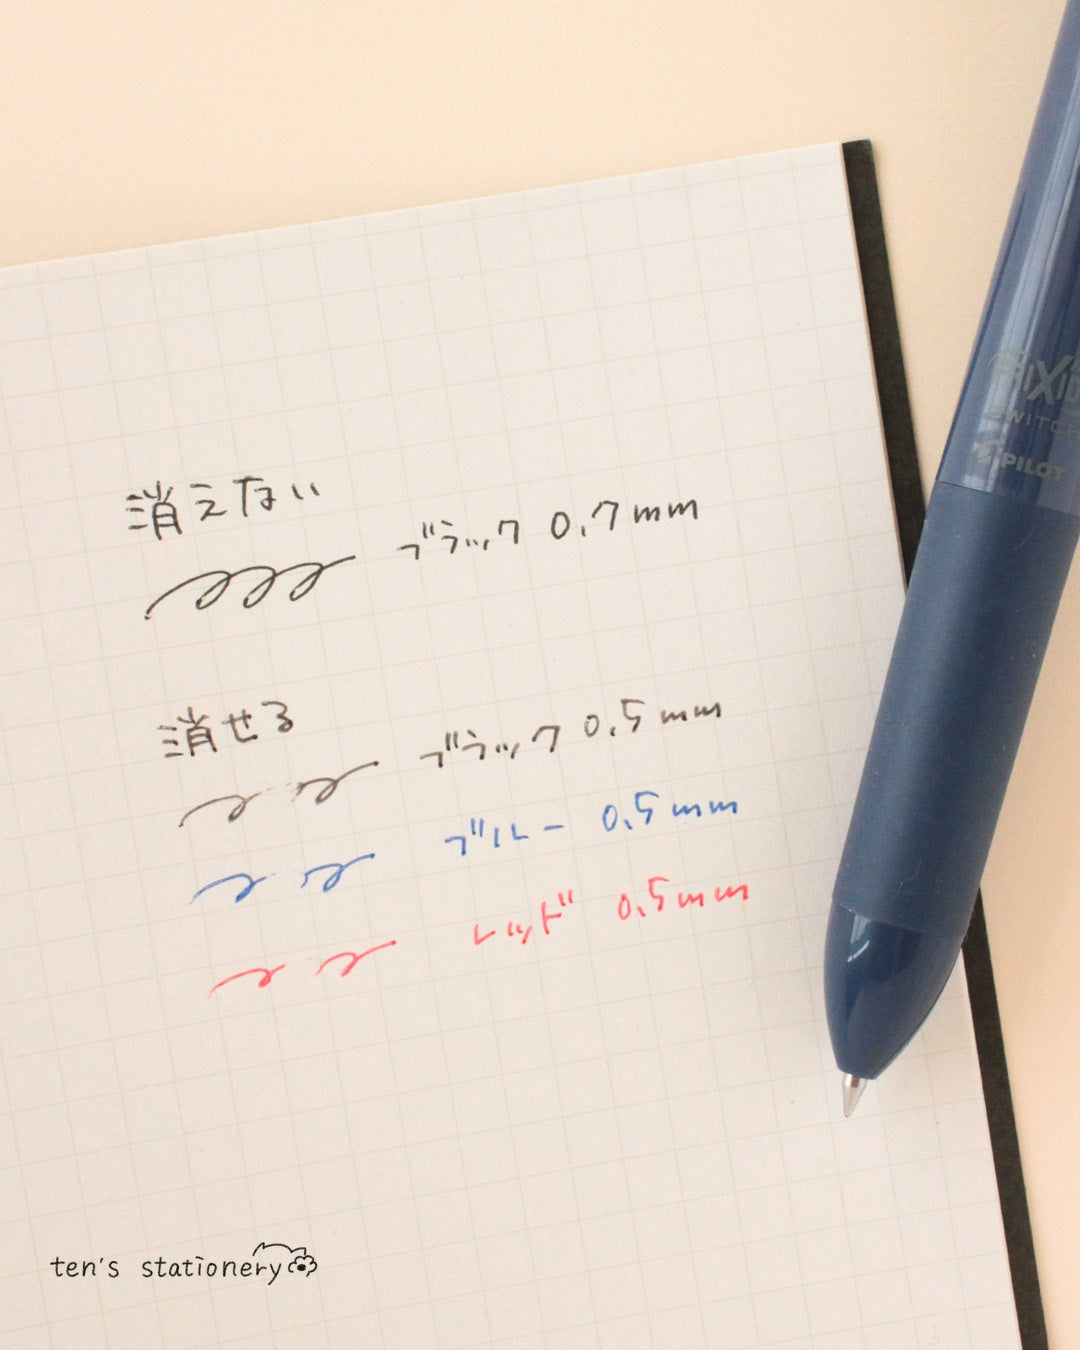 消えない
ブラック 0.7mm
消せる
ブラック 0.5mm
ブルー 0.5mm
レッド 0.5mm
SWITCH
PILOT
ten's stationery